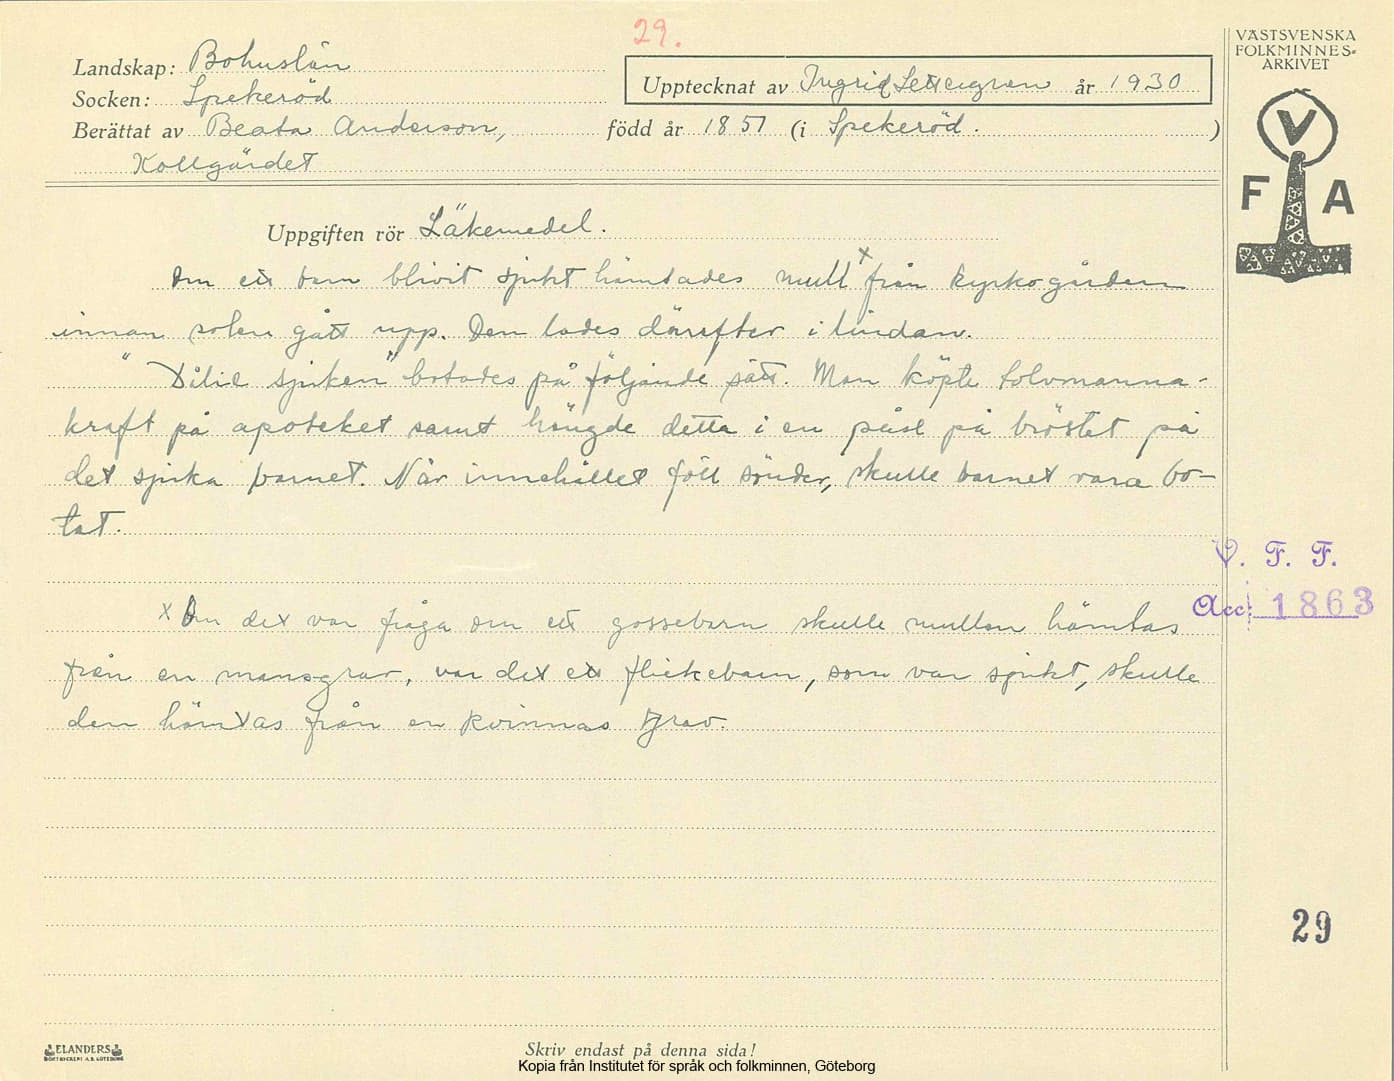 29.
VÄSTSVENSKA
FOLKMINNES-
ARKIVET
Landskap: Bohuslän
Upptecknat av Ingrid år 1930
Socken: Spekeröd
Berättat av Beata Anderson, född år 1851 (i Spekeröd.)
Kollgärdet
V
F A
Uppgiften rör Läkemedel.
Om ett barn blivit sjukt hämtades mull x från kyrkogården
innan solen gått upp. Den lades därefter i lindan.
" sjuken" botades på följande sätt. Man köpte tolvmanna-
kraft på apoteket samt hängde detta i en påse på bröstet på
det sjuka barnet. När innehållet föll sönder, skulle barnet vara bo-
tat.
V. F. F.
Acc: 1863
x Om det var fråga om ett gossebarn skulle mullen hämtas
från en mansgrav, var det ett flickebarn, som var sjukt, skulle
den hämtas från en kvinnas grav.
29
ELANDERS
BOKTRYCKERI A.B. GÖTEBORG
Skriv endast på denna sida!
Kopia från Institutet för språk och folkminnen, Göteborg